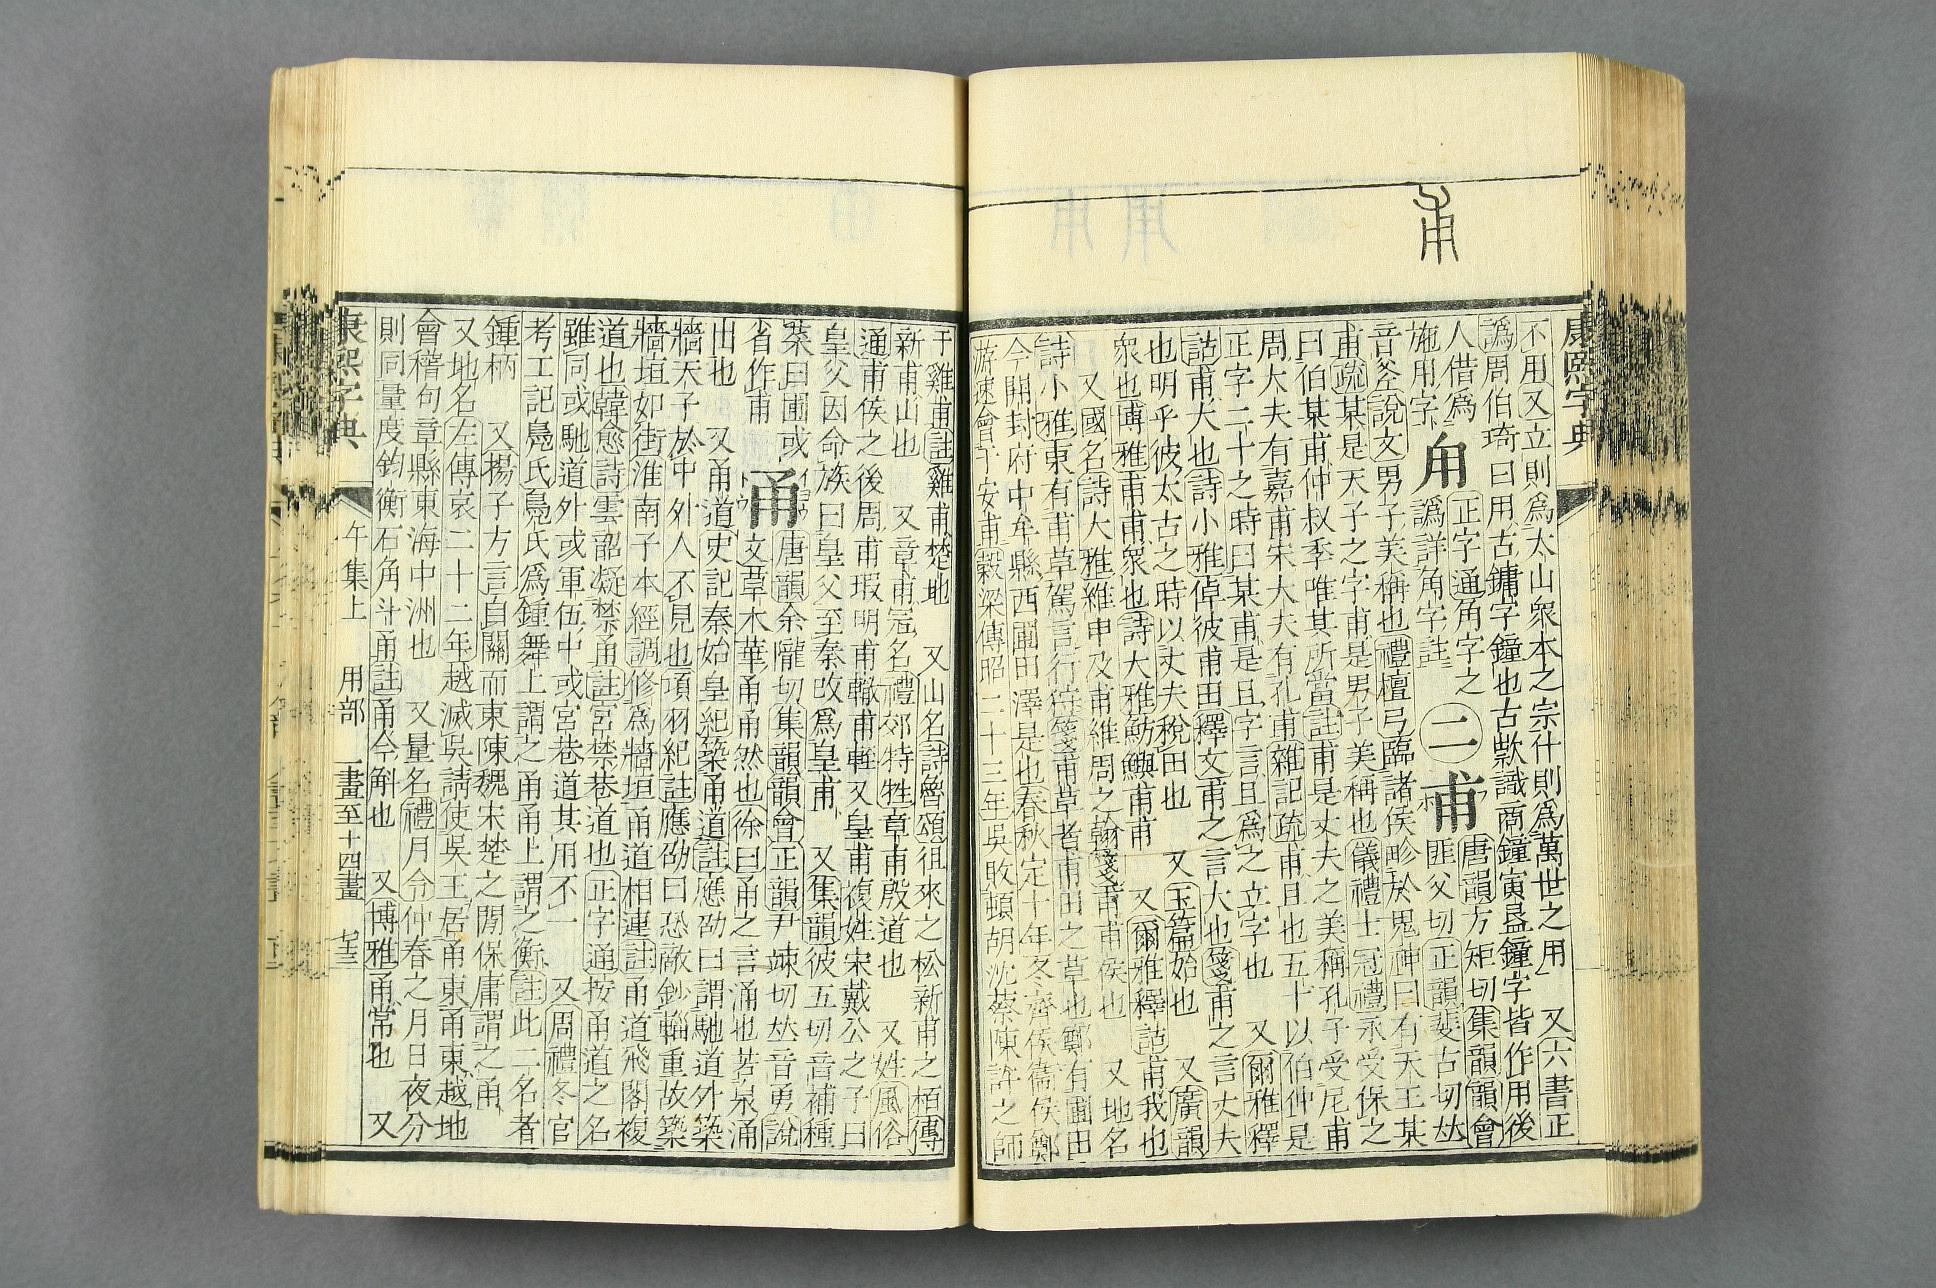 康熙字典
不用又立則爲太山衆本之宗什則爲萬世之用 又六書正
譌周伯琦曰用古鏞字鐘也古款識商鐘寅𥁃鐘字皆作用後
人借爲施用字 甪 正字通角字之譌詳角字註 二 甫 唐韻方矩切集韻韻會
匪父切正韻斐古切𠀤
音斧說文男子美稱也禮檀弓臨諸侯畛於鬼神曰有天王某
甫疏某是天子之字甫是男子美稱也儀禮士冠禮永受保之
曰伯某甫仲叔季唯其所當註甫是丈夫之美稱孔子受尼甫
周大夫有嘉甫宋大夫有孔甫雜記疏甫且也五十以伯仲是
正字二十之時曰某甫是且字言且爲之立字也 又爾雅釋
詁甫大也詩小雅倬彼甫田釋文甫之言大也箋甫之言丈夫
也明乎彼太古之時以丈夫稅田也 又玉篇始也 又廣韻
衆也博雅甫甫衆也詩大雅魴鱮甫甫 又爾雅釋詁甫我也
又國名詩大雅維申及甫維周之翰箋甫甫侯也 又地名
詩小雅東有甫草駕言行狩箋甫草者甫田之草也鄭有圃田
今開封府中牟縣西圃田澤是也春秋定十年冬齊侯衞侯鄭
游速會于安甫穀梁傳昭二十三年吳敗頓胡沈蔡陳許之師
于雞甫註雞甫楚地 又山名詩魯頌徂來之松新甫之栢傳
新甫山也 又章甫冠名禮郊特牲章甫殷道也 又姓風俗
通甫侯之後周甫瑕明甫轍甫輊又皇甫複姓宋戴公之子曰
皇父因命族曰皇父至秦攺爲皇甫 又集韻彼五切音補種
菜曰圃或省作甫 甬 唐韻余隴切集韻韻會正韻尹竦切𠀤音勇說
文草木華甬甬然也徐曰甬之言涌也若泉涌
出也 又甬道史記秦始皇紀築甬道註應劭曰謂馳道外築
牆天子於中外人不見也項羽紀註應劭曰恐敵鈔輜重故築
牆垣如街淮南子本經調修爲牆垣甬道相連註甬道飛閣複
道也韓愈詩雲韶凝禁甬註宮禁巷道也正字通按甬道之名
雖同或馳道外或軍伍中或宮巷道其用不一 又周禮冬官
考工記鳧氏鳧氏爲鍾舞上謂之甬甬上謂之衡註此二名者
鍾柄 又揚子方言自關而東陳魏宋楚之閒保庸謂之甬
又地名左傳哀二十二年越滅吳請使吳王居甬東甬東越地
會稽句章縣東海中洲也 又量名禮月令仲春之月日夜分
則同量度鈞衡石角斗甬註甬今斛也 又博雅甬常也 又
康熙字典 午集上 用部 一畫至十四畫